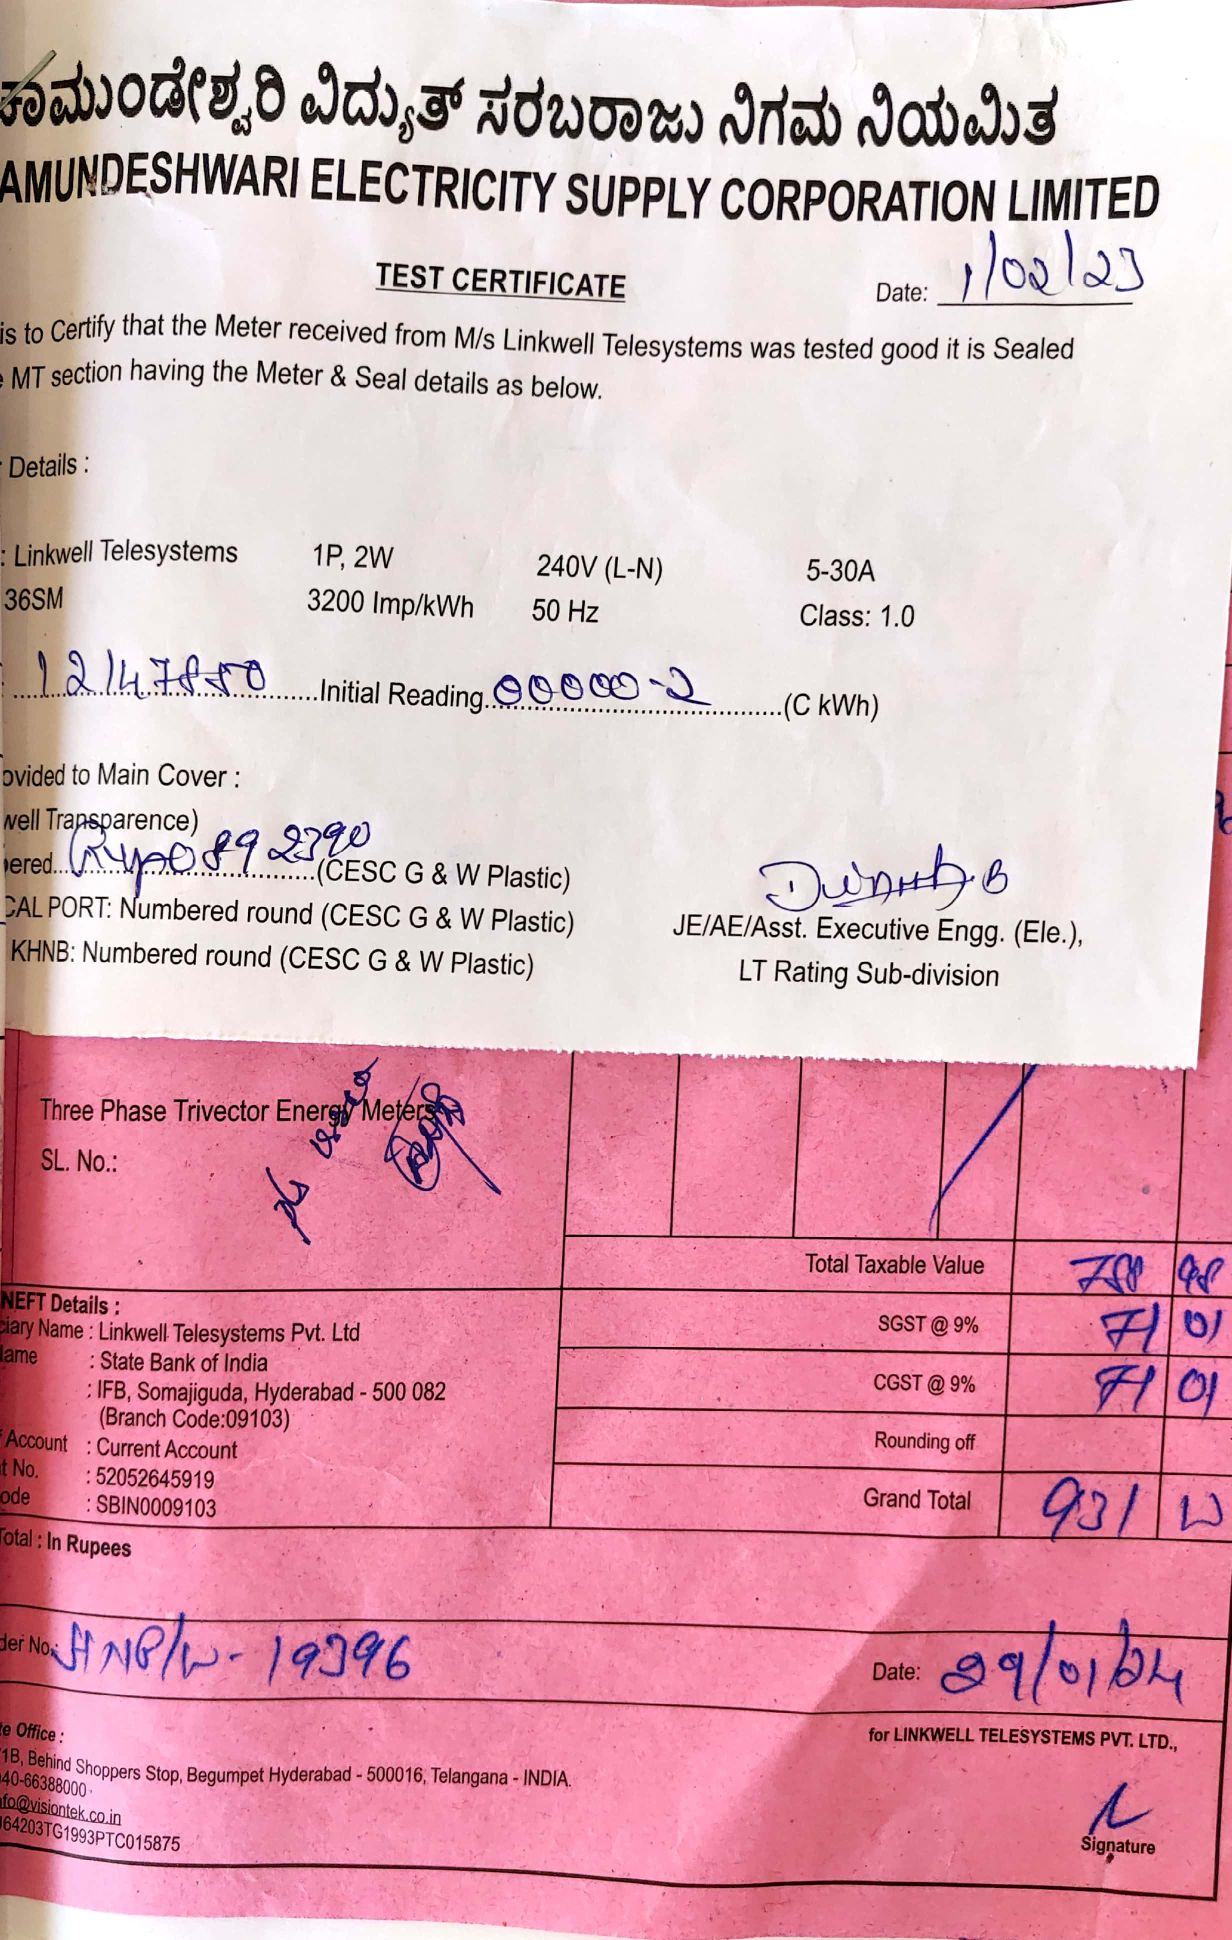 ಚಾಮುಂಡೇಶ್ವರಿ ವಿದ್ಯುತ್ ಸರಬರಾಜು ನಿಗಮ ನಿಯಮಿತ
AMUNDESHWARI ELECTRICITY SUPPLY CORPORATION LIMITED
TEST CERTIFICATE
Date: 1/02/23
is to Certify that the Meter received from M/s Linkwell Telesystems was tested good it is Sealed
MT section having the Meter & Seal details as below.
Details :
: Linkwell Telesystems 1P, 2W 240V (L-N) 5-30A
36SM 3200 Imp/kWh 50 Hz Class: 1.0
: 12147880 Initial Reading 00000-2 (C kWh)
ovided to Main Cover :
well Transparence)
ered 0892390 (CESC G & W Plastic)
CAL PORT: Numbered round (CESC G & W Plastic)
KHNB: Numbered round (CESC G & W Plastic)
JE/AE/Asst. Executive Engg. (Ele.),
LT Rating Sub-division
Three Phase Trivector Energy Meters
SL. No.:
Total Taxable Value 788 98
SGST @ 9% 71 01
CGST @ 9% 71 01
Rounding off
Grand Total 931 w
NEFT Details :
ciary Name : Linkwell Telesystems Pvt. Ltd
lame : State Bank of India
: IFB, Somajiguda, Hyderabad - 500 082
(Branch Code:09103)
Account : Current Account
t No. : 52052645919
ode : SBIN0009103
Total : In Rupees
der No. HNP/W-19396
Date: 29/01/24
te Office :
1B, Behind Shoppers Stop, Begumpet Hyderabad - 500016, Telangana - INDIA.
40-66388000
fo@visiontek.co.in
64203TG1993PTC015875
for LINKWELL TELESYSTEMS PVT. LTD.,
Signature